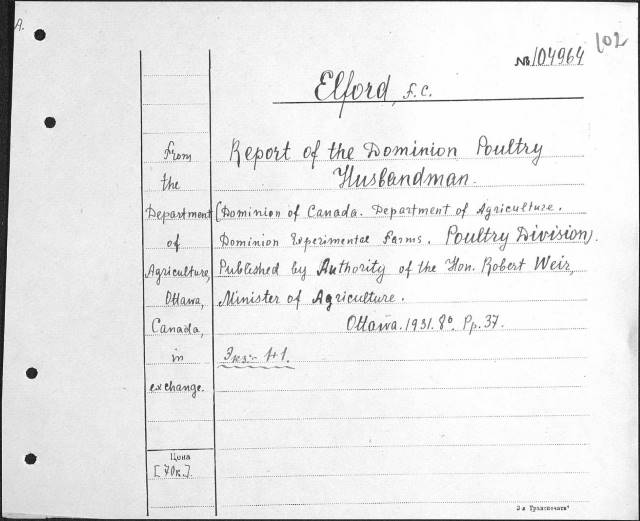 A.
102
№ 104964
Elford, F.C.
From
the
Department
of
Agriculture,
Ottawa,
Canada,
in
exchange.
Report of the Dominion Poultry
Husbandman.
(Dominion of Canada. Department of Agriculture.
Dominion Experimental Farms. Poultry Division).
Published by Authority of the Hon. Robert Weir,
Minister of Agriculture.
Ottawa. 1931. 8º. Pp. 37.
Экз:- 1+1.
Цена
[70к.]
3-я „Транспечать"